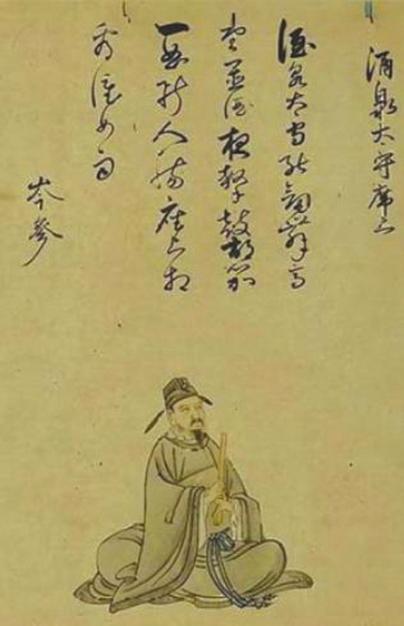 酒泉太守席上
酒泉太守能劔舞高
堂置酒夜擊鼓胡笳
一曲断人腸座上相
看淚如雨
岑參